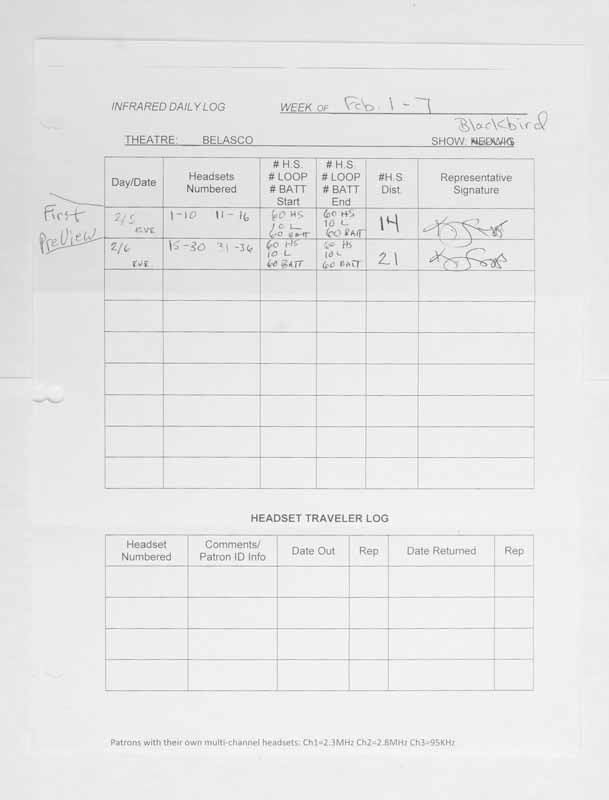 INFRARED DAILY LOG WEEK OF Feb. 1 - 7
Blackbird
THEATRE: BELASCO SHOW: HEDWIG
Day/Date Headsets Numbered # H.S. # LOOP # BATT Start # H.S. # LOOP # BATT End #H.S. Dist. Representative Signature
First Preview
2/5 EVE 1-10 11-16 60 HS 10 L 60 BATT 60 HS 10 L 60 BATT 14
2/6 EVE 15-30 31-36 60 HS 10 L 60 BATT 60 HS 10 L 60 BATT 21
HEADSET TRAVELER LOG
Headset Numbered Comments/ Patron ID Info Date Out Rep Date Returned Rep
Patrons with their own multi-channel headsets: Ch1=2.3MHz Ch2=2.8MHz Ch3=95KHz